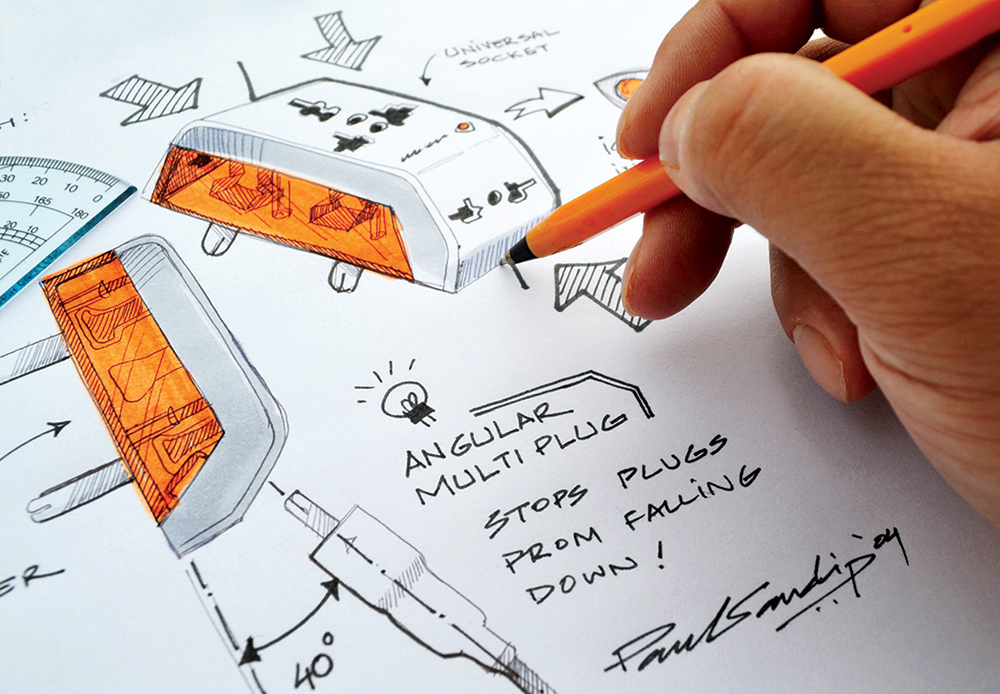 UNIVERSAL
SOCKET
H:
30 20 10 0
165 180
20 10
ANGULAR
MULTI PLUG
STOPS PLUGS
PROM FALLING
DOWN!
ER
40°
Paul Sandip '04